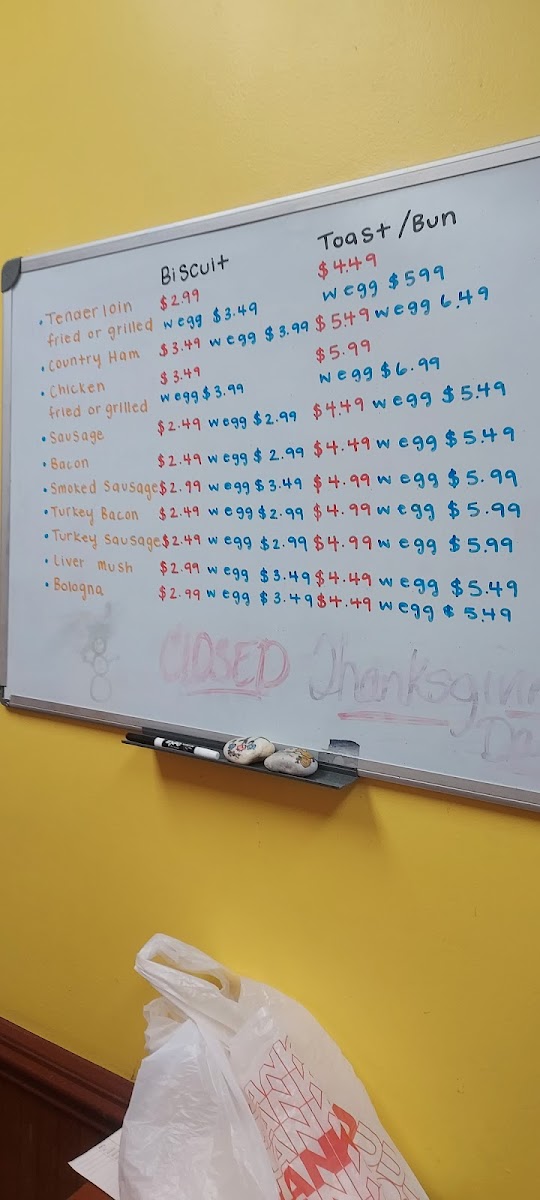 Biscuit Toast/Bun
• Tenderloin $2.99 $4.49
fried or grilled w egg $3.49 w egg $599
• Country Ham $3.49 w egg $3.99 $5.49 w egg 6.49
• Chicken $3.49 $5.99
fried or grilled w egg $3.99 w egg $6.99
• Sausage $2.49 w egg $2.99 $4.49 w egg $5.49
• Bacon $2.49 w egg $2.99 $4.49 w egg $5.49
• Smoked Sausage $2.99 w egg $3.49 $4.99 w egg $5.99
• Turkey Bacon $2.49 w egg $2.99 $4.99 w egg $5.99
• Turkey Sausage $2.49 w egg $2.99 $4.99 w egg $5.99
• Liver mush $2.99 w egg $3.49 $4.49 w egg $5.49
• Bologna $2.99 w egg $3.49 $4.49 w egg $5.49
CLOSED